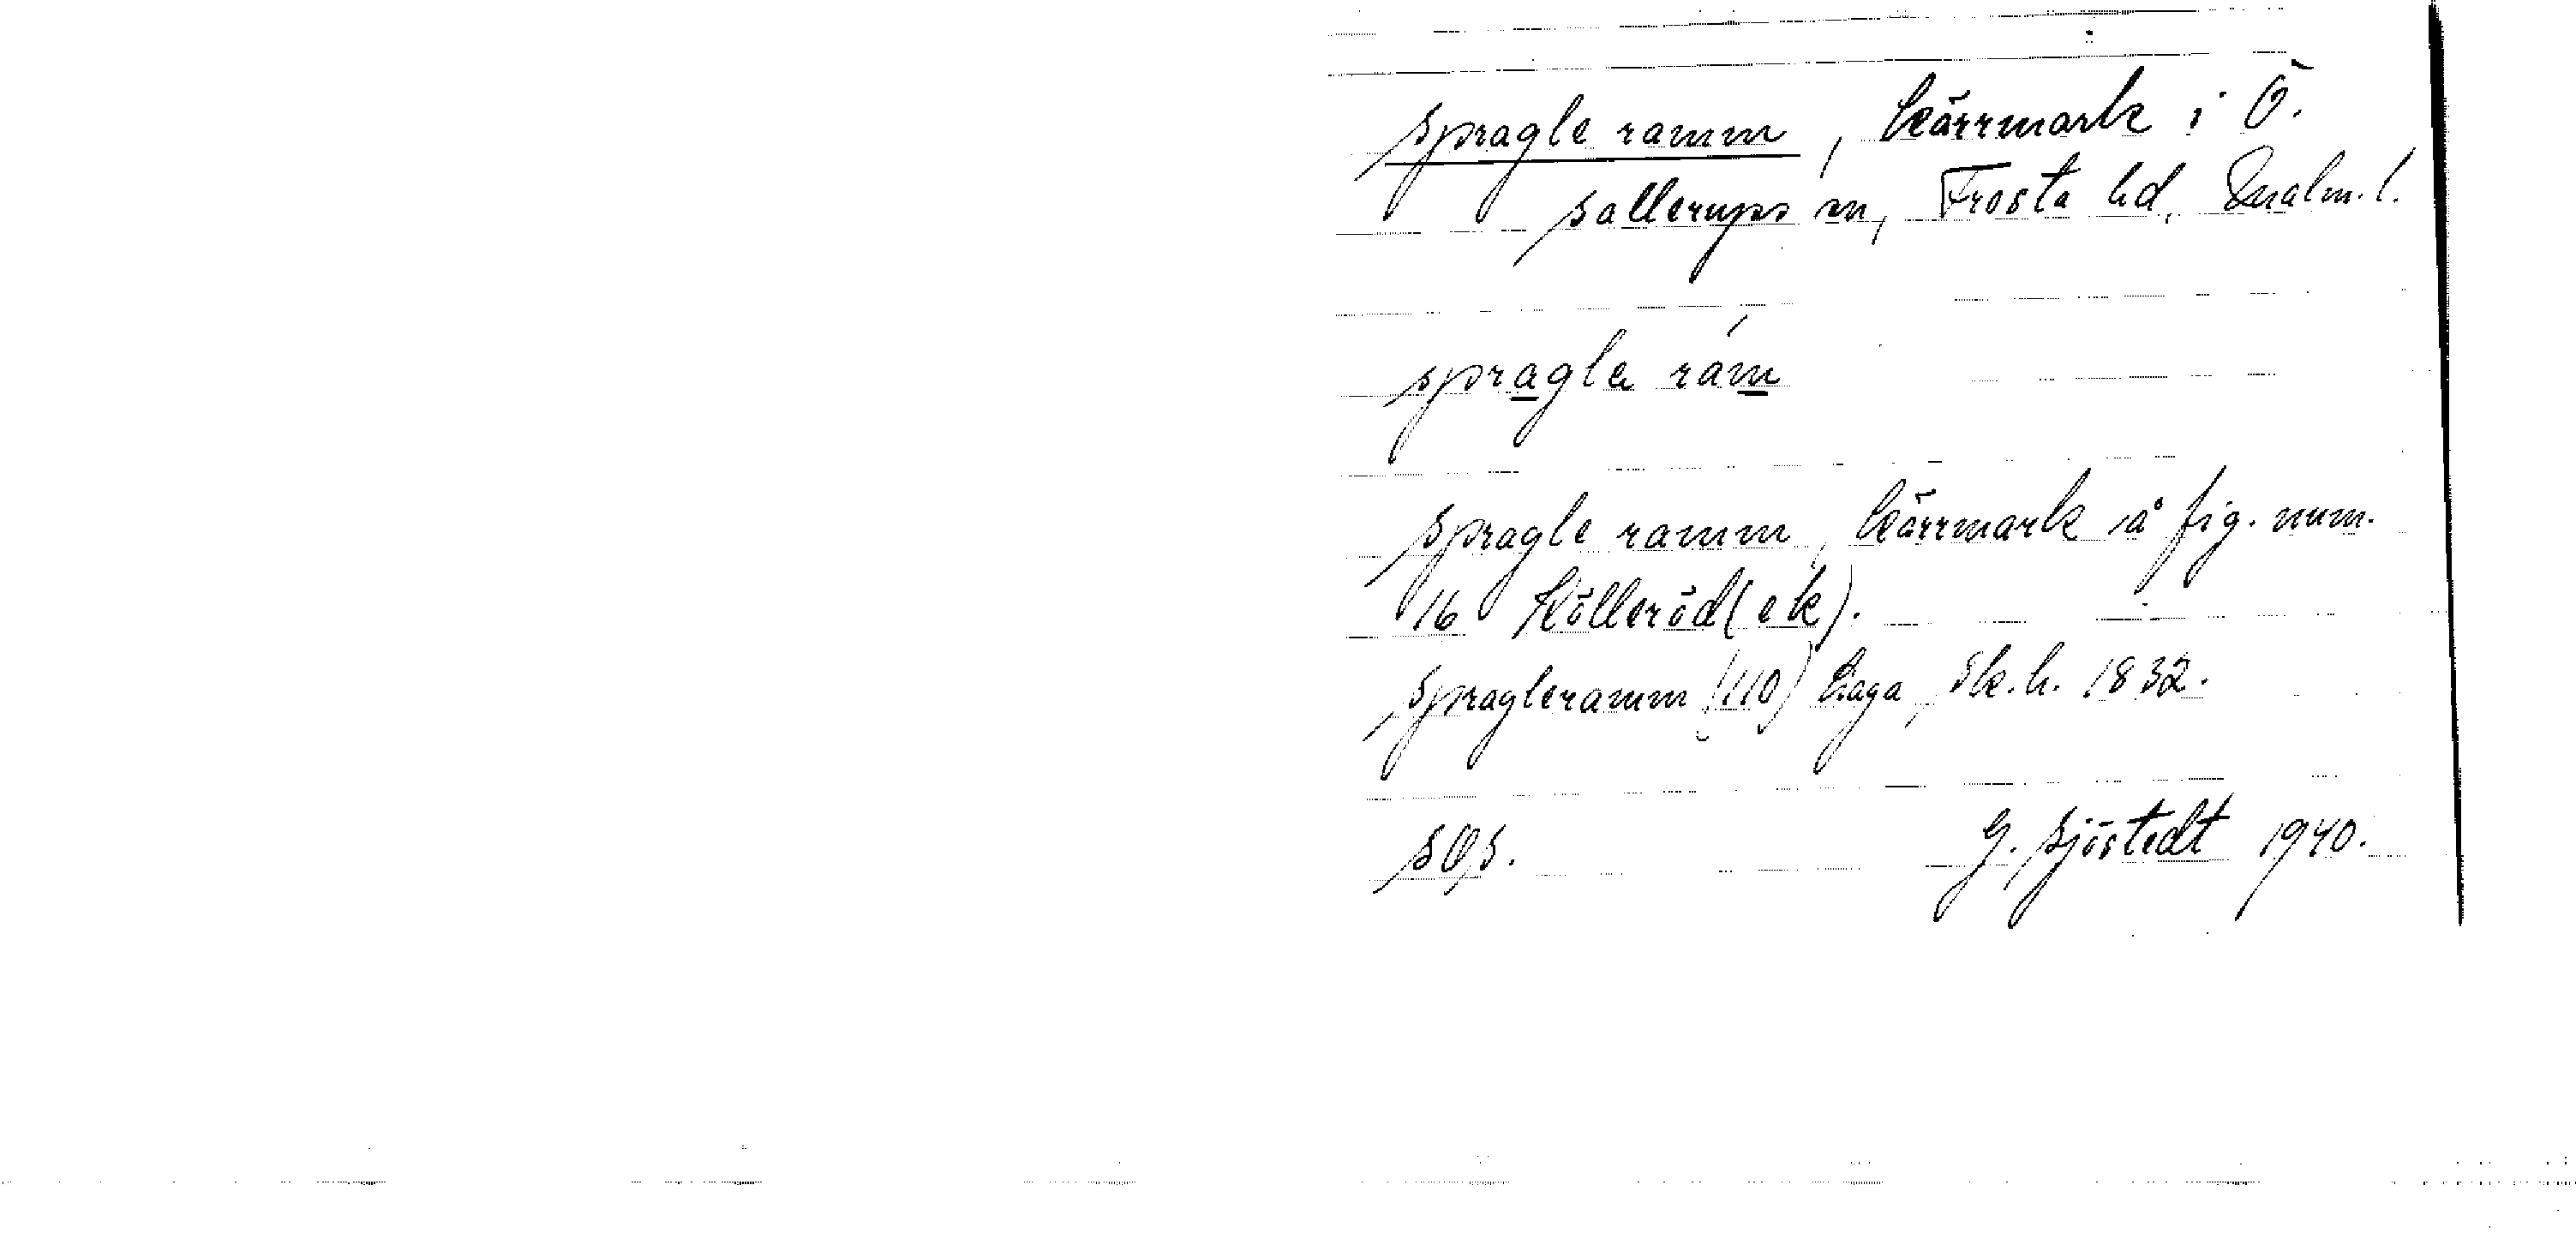 Spragle ramm, kärrmark i Ö.
Sallerups sn, Frosta hd, Malm. l.
spragla rám
Spragle ramm, kärrmark på fig. num.
16 Kölleröd (ek).
Spragleramm (110) Laga Sk. h. 1832.
SOS. G. Sjöstedt 1940.